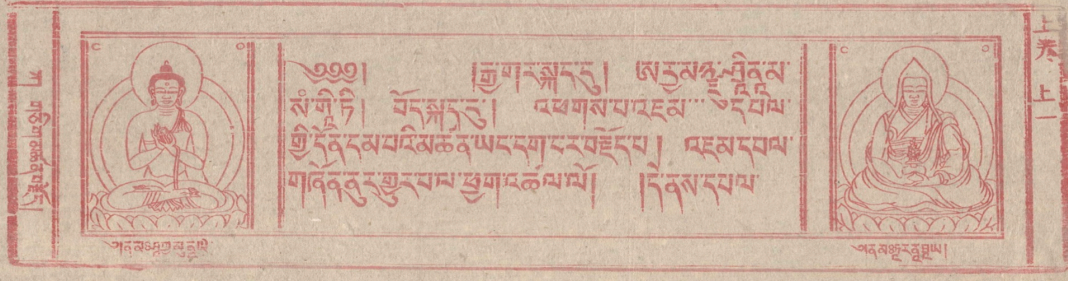 ཀ། གཅིག མཚན་བརྗོད།
༄༅༅། །རྒྱ་གར་སྐད་དུ། ཨཱརྱ་མཉྫུ་ཤྲཱི་ནཱ་མ་
སཾ་གཱི་ཏི། བོད་སྐད་དུ། འཕགས་པ་འཇམ་དཔལ་
གྱི་དོན་དམ་པའི་མཚན་ཡང་དག་པར་བརྗོད་པ། འཇམ་དཔལ་
གཞོན་ནུར་གྱུར་པ་ལ་ཕྱག་འཚལ་ལོ། །དེ་ནས་དཔལ་
ན་མཿ
ན་མཿ
上卷 上一